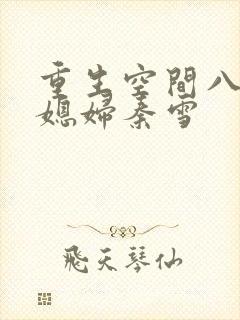 重生空間八
媳婦秦雪
飛天琴仙